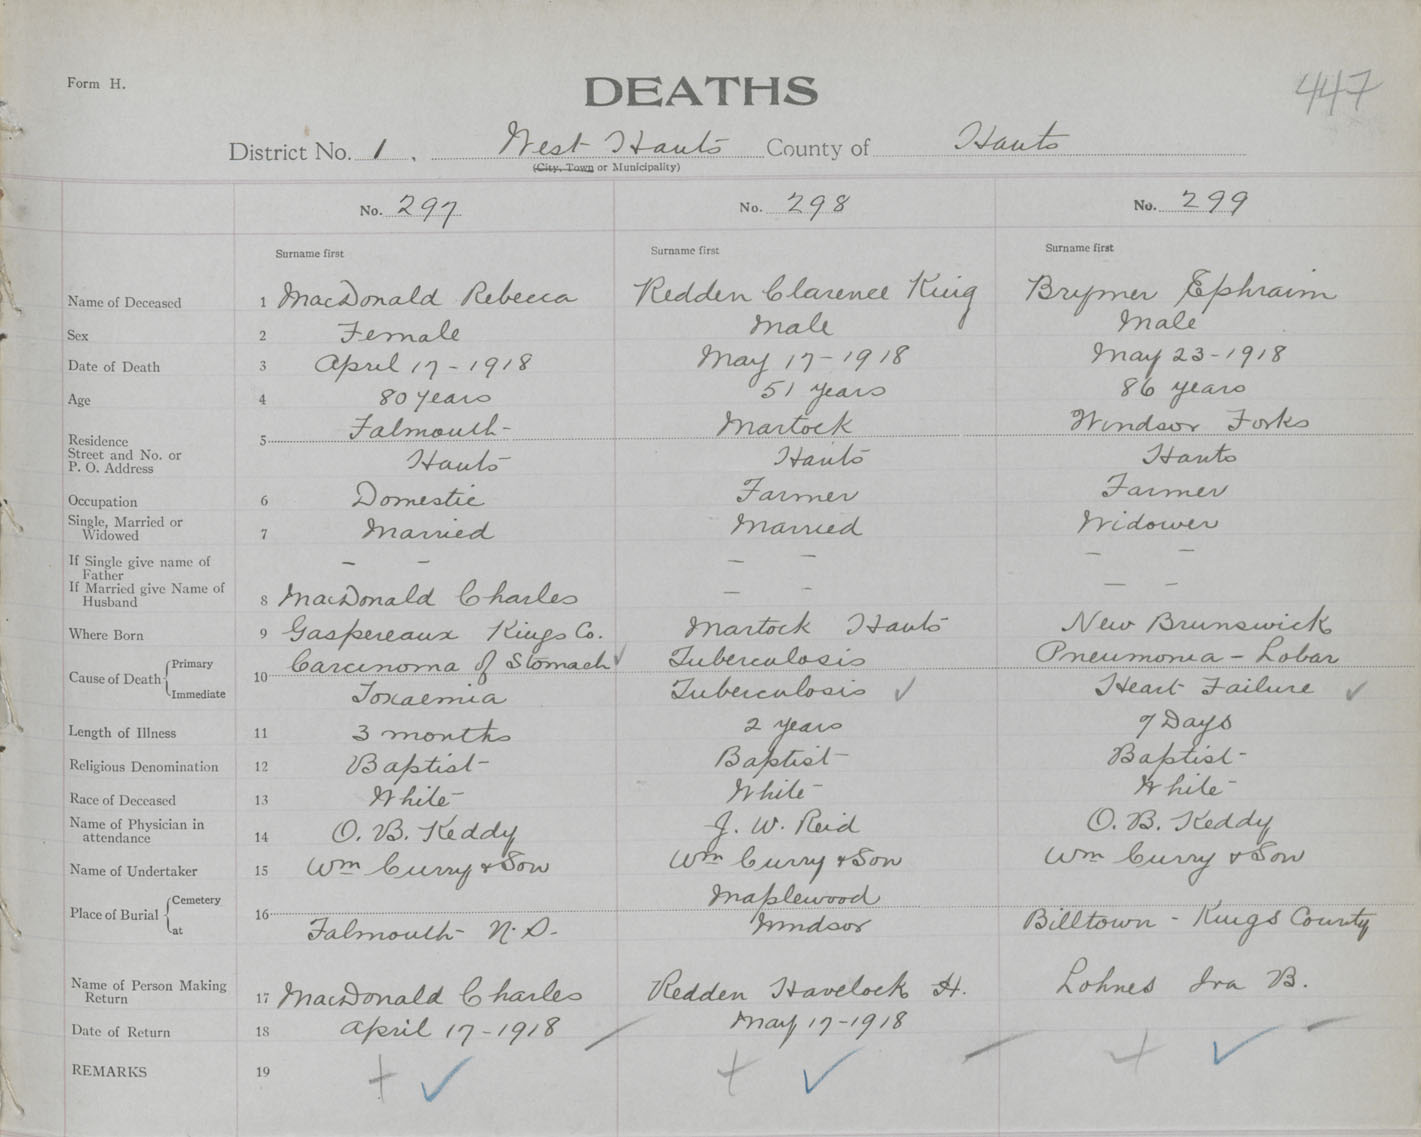 Form H.
DEATHS
447
District No. 1. West Hants County of Hants
(City, Town or Municipality)
No. 297 No. 298 No. 299
Surname first Surname first Surname first
Name of Deceased 1 MacDonald Rebecca Redden Clarence King Brymer Ephraim
Sex 2 Female Male Male
Date of Death 3 April 17-1918 May 17-1918 May 23-1918
Age 4 80 years 51 years 86 years
Residence 5 Falmouth Martock Windsor Forks
Street and No. or
P. O. Address Hants Hants Hants
Occupation 6 Domestic Farmer Farmer
Single, Married or
Widowed 7 Married Married Widower
If Single give name of
Father - - - - - -
If Married give Name of
Husband 8 MacDonald Charles - - - -
Where Born 9 Gaspereaux Kings Co. Martock Hants New Brunswick
Cause of Death 10 Primary Carcinoma of Stomach ✓ Tuberculosis Pneumonia - Lobar
Immediate Toxaemia Tuberculosis ✓ Heart Failure ✓
Length of Illness 11 3 months 2 years 7 Days
Religious Denomination 12 Baptist Baptist Baptist
Race of Deceased 13 White White White
Name of Physician in
attendance 14 O. B. Keddy J. W. Reid O. B. Keddy
Name of Undertaker 15 Wm Curry & Son Wm Curry & Son Wm Curry & Son
Place of Burial 16 Cemetery Maplewood
at Falmouth N.S. Windsor Billtown - Kings County
Name of Person Making
Return 17 MacDonald Charles Redden Havelock H. Lohnes Ira B.
Date of Return 18 April 17-1918 May 17-1918
REMARKS 19 + ✓ + ✓ + ✓